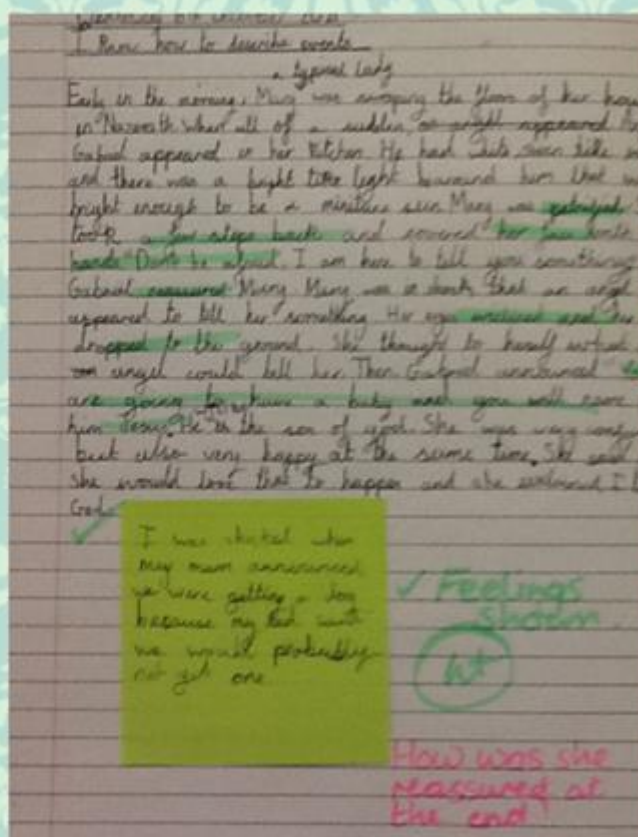 I Know how to describe events
a typical lady
Early in the morning, Mary was sweeping the floors of her
in Nazareth when all of a sudden, an angel appeared
Gabriel appeared in her kitchen. He had
and there was a bright light around him that
bright enough to be a miniture sun. Mary was
took a few steps back and covered her face
hands "Don't be afraid. I am here to tell you something
Gabriel reassured Mary. Mary was in shock that an angel
appeared to tell her something. Her eyes widened and
dropped to the ground. She thought to herself
angel could tell her. Then Gabriel announced
are going to have a baby and you will
him Jesus. He is the son of god. She was very
but also very happy at the same time. She said
she would love that to happen and she exclaimed I
God.
I was shocked when
my mum announced
we were getting a dog
because my dad said
we would probabley
not get one
✓ Feelings
shown.
How was she
reassured at
the end